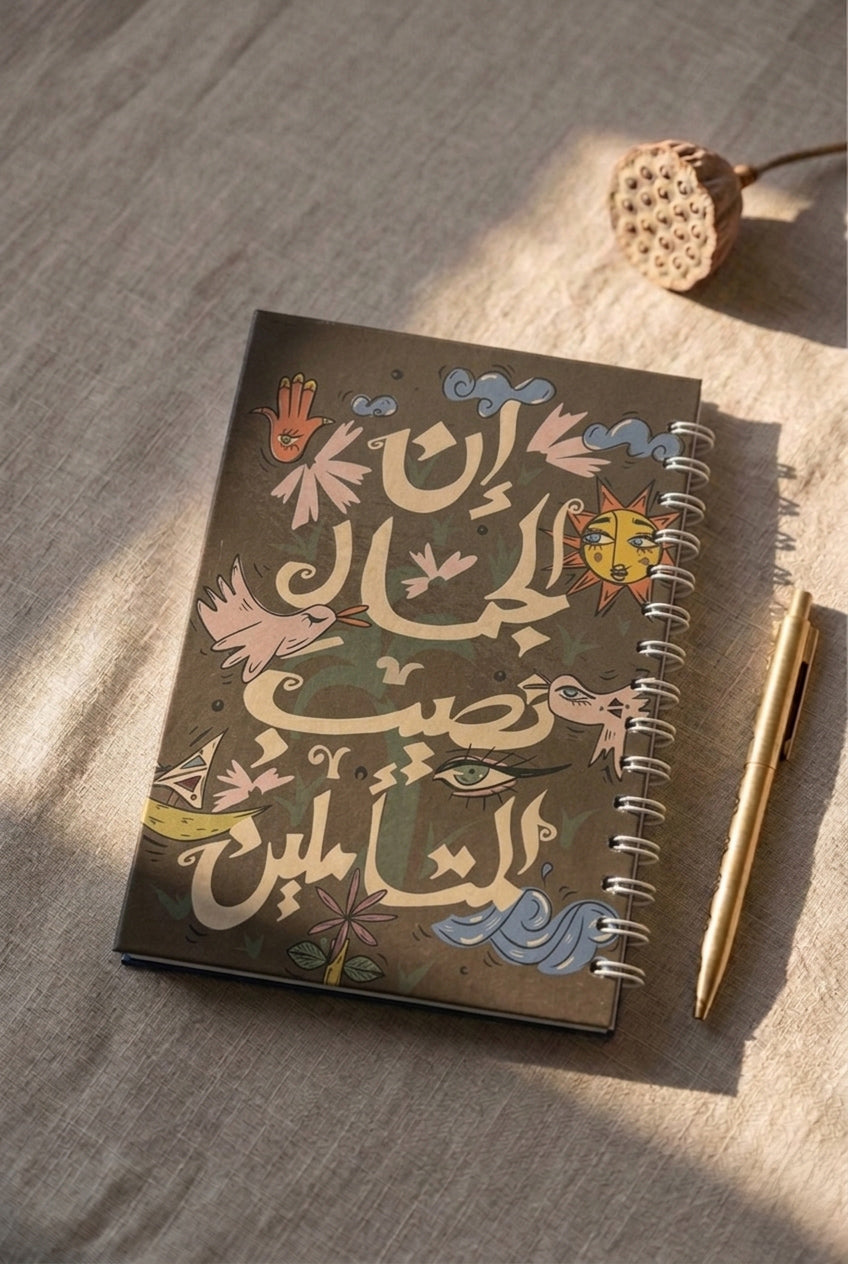 إن
الجمال
نصيب
المتأملين